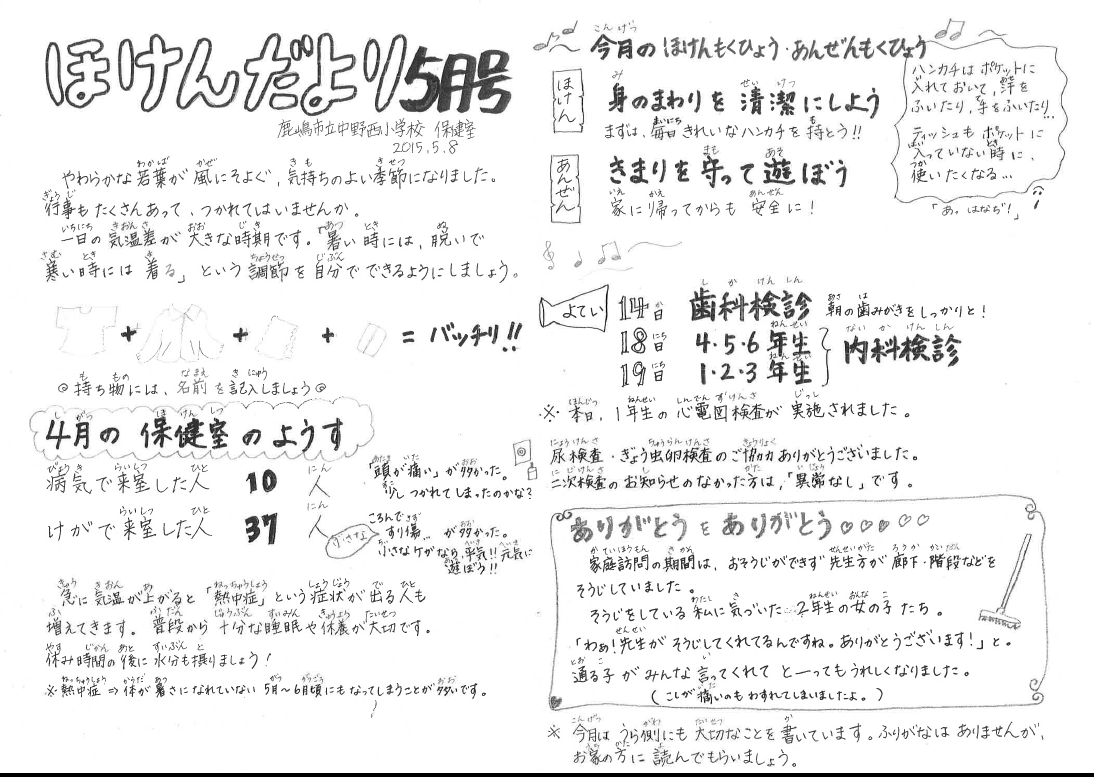 ほけんだより5月号
鹿嶋市立中野西小学校 保健室
2015.5.8
やわらかな若葉が風にそよぐ、気持ちのよい季節になりました。
行事もたくさんあって、つかれてはいませんか。
一日の気温差が大きな時期です。「暑い時には、脱いで
寒い時には着る」という調節を自分でできるようにしましょう。
+ + + = バッチリ!!
◎持ち物には、名前を記入しましょう◎
4月の保健室のようす
病気で来室した人 10人
「頭が痛い」が多かった。
少しつかれてしまったのかな?
けがで来室した人 37人
小さな
ころんですり傷… が多かった。
小さなケガなら、平気!!元気に
遊ぼう!!
急に気温が上がると「熱中症」という症状が出る人も
増えてきます。普段から十分な睡眠や休養が大切です。
休み時間の後に水分も摂りましょう!
※熱中症⇒体が暑さになれていない5月〜6月頃にもなってしまうことが多いです。
今月のほけんもくひょう・あんぜんもくひょう
ほけん
身のまわりを清潔にしよう
まずは、毎日きれいなハンカチを持とう!!
あんぜん
きまりを守って遊ぼう
家に帰ってからも安全に!
ハンカチはポケットに
入れておいて、汗を
ふいたり、手をふいたり…
ティッシュもポケットに
入っていない時に、
使いたくなる…
「あっはなぢ!」
よてい
14日 歯科検診 朝の歯みがきをしっかりと!
18日 4・5・6年生
19日 1・2・3年生
内科検診
※本日、1年生の心電図検査が実施されました。
尿検査・ぎょう虫卵検査のご協力ありがとうございました。
二次検査のお知らせのなかった方は、「異常なし」です。
ありがとうをありがとう♡♡♡♡♡
家庭訪問の期間は、おそうじができず先生方が廊下・階段などを
そうじしていました。
そうじをしている私に気づいた、2年生の女の子たち。
「わぁ!先生がそうじしてくれてるんですね。ありがとうございます!」と。
通る子がみんな言ってくれてと―ってもうれしくなりました。
(こしが痛いのもわすれてしまいましたよ。)
※今月はうら側にも大切なことを書いています。ふりがなはありませんが、
お家の方に読んでもらいましょう。